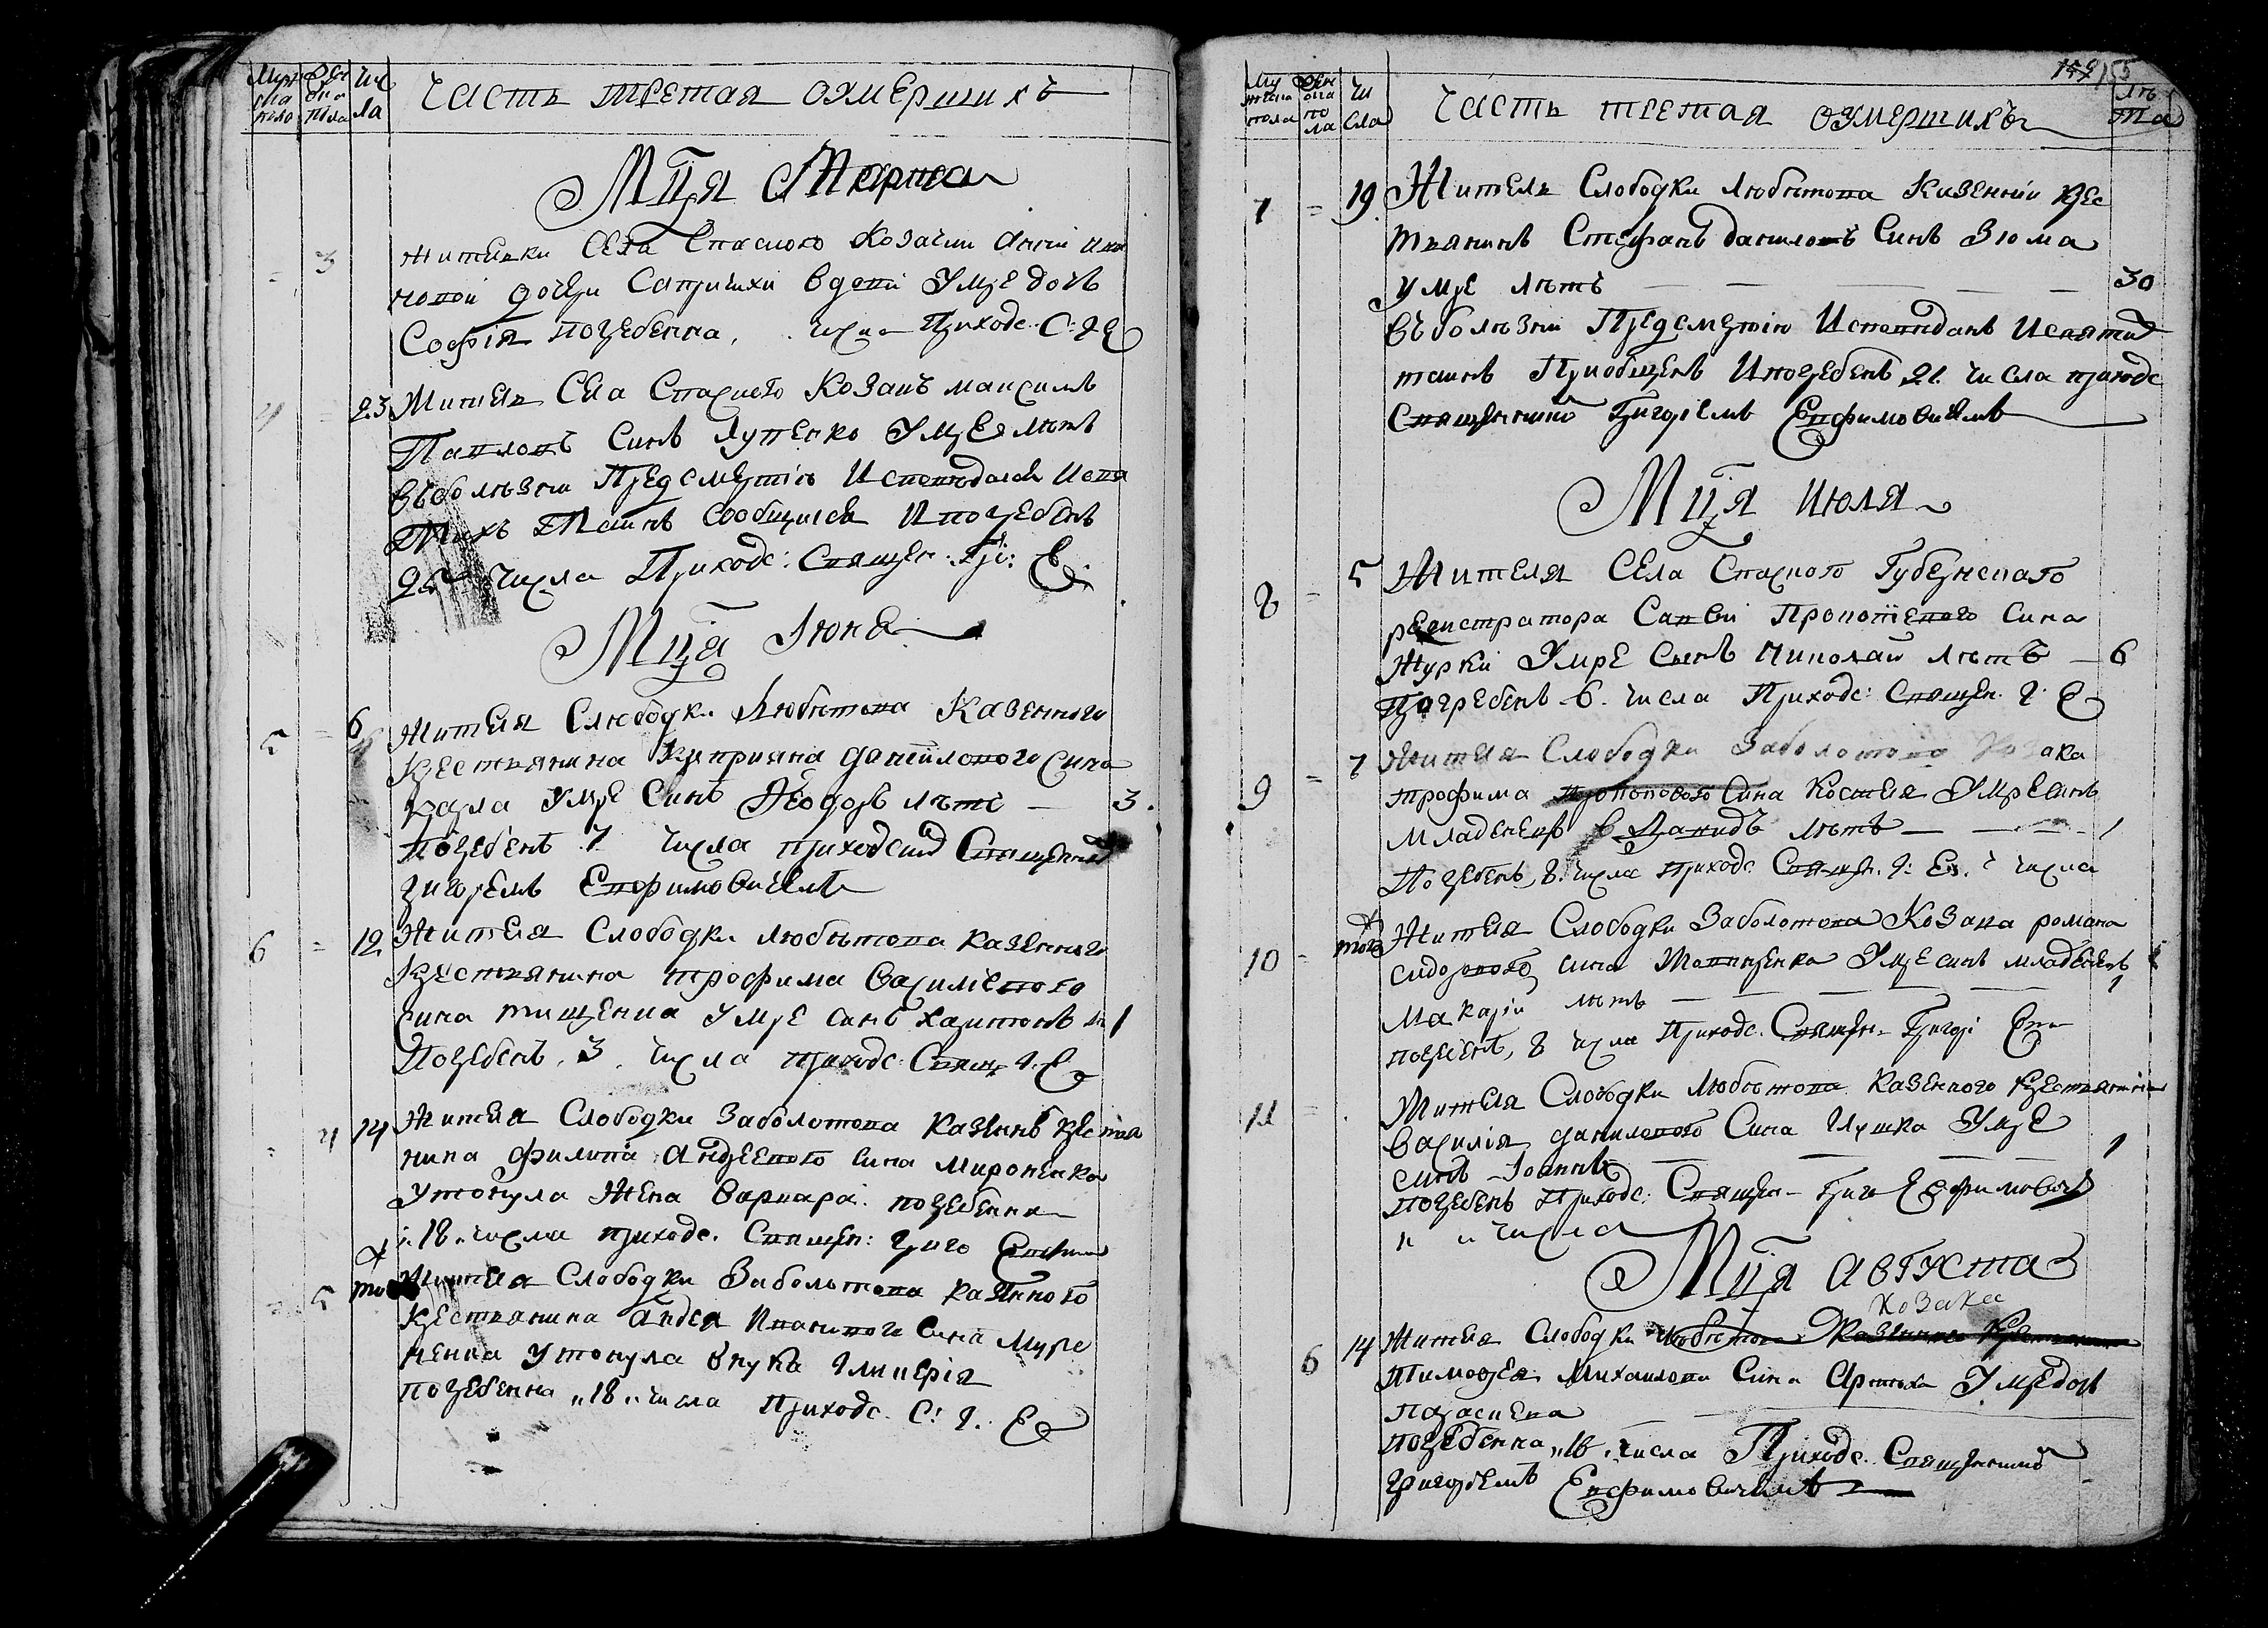 Муже
ска
пола
Жен
ска
пола
Чи
сла
Часть третая оумершихъ
Мця Марта
3
Жителки Села Спаского Козачки Анни
новой дочери вдови Умре дочь
Софія погребенна, числа Приходс: С: Г Е
4 = 23 Житель Села Спаского Козакъ максимъ
Павловъ Синъ Луценко Умре лѣтъ
въ болѣзни Предсмертіи Исповѣдался Исвя
тихъ Таинъ Сообщился Ипогребенъ
25 числа Приходс: Священ: Гри: Е
Мця Іюня
5 = 6 Жителя Слободки Любитова Казенного
Крестьянина Куприяна даніилового Сина
Умре Синъ Ѳеодоръ лѣтъ — 3.
Погребенъ 7 числа приходским Священни
григоріемъ Евфимовичемъ
6 = 12 Жителя Слободки любитова казенного
Крестьянина трофима Василевого
сина тищенка Умре синъ харитонъ лѣ 1
Погребенъ. 3. числа приходс: Свящ: г. Е
4 14 Жителя Слободки Заболотова казенъ крестья
нина Филипа Андреевого сина Мироненка
Утонула Жена Варвара. погребенна
18. числа приходс. Священ: григо Евфим
5 того Жителя Слободки Заболотова казенного
Крестьянина Андея Иванового сина Миро
ненка Утонула внука Гликерія
погребенна „18„ числа Приходс. С: Г. Е
159 155
Му
жеска
пола
Жен
ска
по
ла
Чи
сла
Часть третая оумершихъ
Лѣ
та
7 = 19 Житель Слободки любитова Казенній крес
тянинъ Стефанъ даниловъ Синъ Зюма
умре лѣтъ — — — — 30
въ болѣзни Предсмертію Исповѣданъ Исвяти
таинъ Приобщенъ Ипогребенъ 21. числа приходс
Священникомъ Григоріемъ Евфимовичемъ
Мця Июля
8 = 5 Жителя Села Спаского Губернскаго
регистратора Савви Прокопіевого Сина
Журки Умре Сынъ Николай лѣтъ — 6
Погребенъ 6. числа Приходс: Священ. г. Е
9 = 7 Жителя Слободки Заболотова Козака
трофима Прокопового Сина Костея Умре Синъ
младенецъ Давидъ лѣтъ — — — 1
Погребенъ, 8. числа приходс. Священ. г: Ев. числа
10 = того Жителя Слободки Заболотова Козака романа
сидорового сина Умре синъ младенецъ
Макарій лѣтъ — — — 1
погребенъ, 8 числа Приходс. Священ. Григорі Евф
11 = Жителя Слободки Любитова казенного крестьянина
Василія данилового Сина Глушка Умре
синъ Іоаннъ — — — 1
погребенъ Приходс: Священ- Григо Евфимович
„ „ числа
Мця августа
козака
6 14 Жителя Слободки Любитова Казенного Крестьянина
Тимофея Михайлова Сина Умре дочь
параскева
погребенна „16„ числа Приходс. Священникомъ
григоріемъ Евфимовичемъ